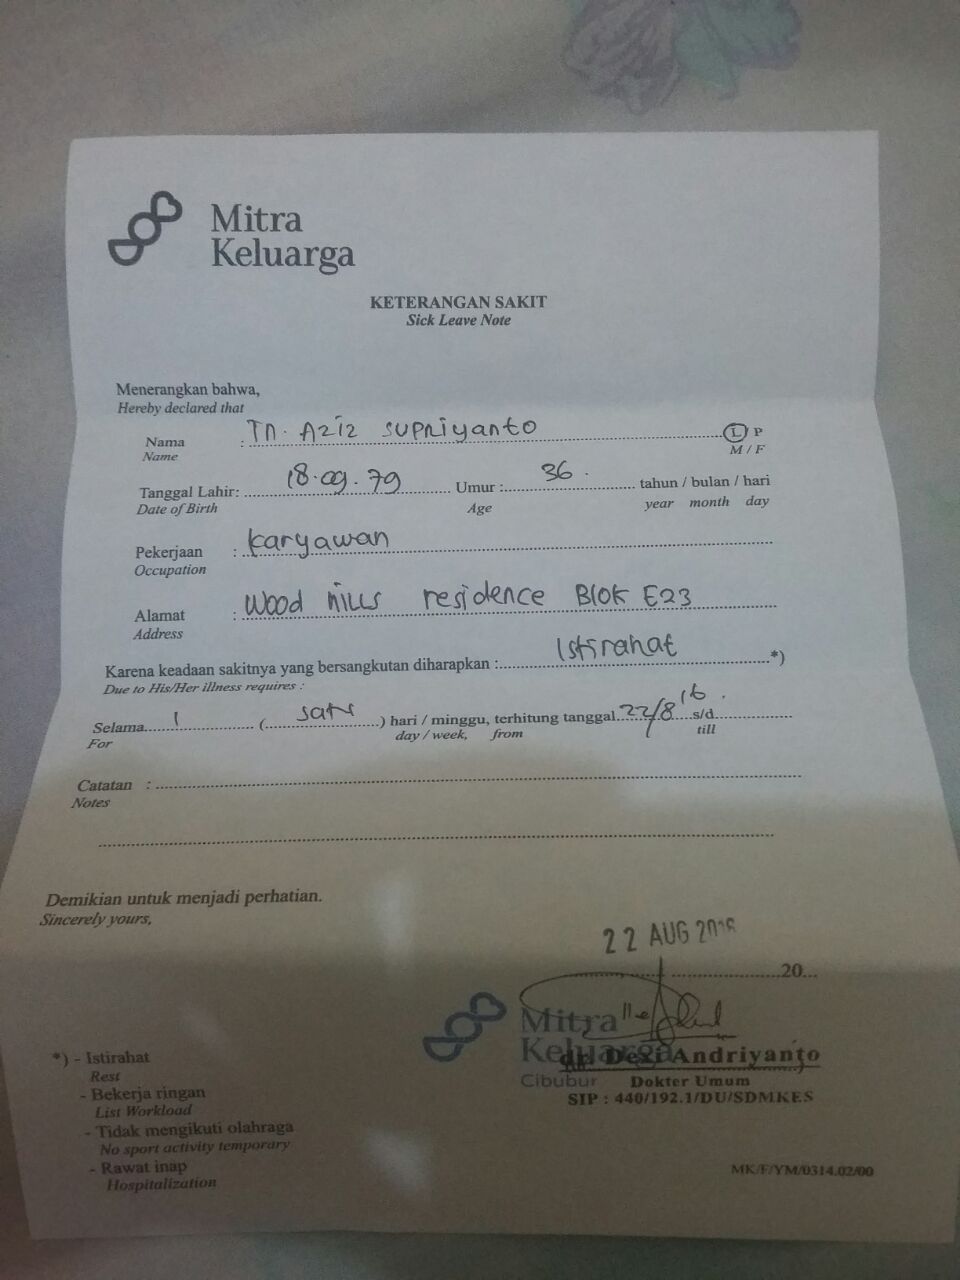 Mitra
Keluarga
KETERANGAN SAKIT
Sick Leave Note
Menerangkan bahwa,
Hereby declared that
Nama : Tn. Aziz Supriyanto L P
Name M / F
Tanggal Lahir: 18.09.79 Umur : 36 tahun / bulan / hari
Date of Birth Age year month day
Pekerjaan : karyawan
Occupation
Alamat : Wood hills residence Blok E23
Address
Karena keadaan sakitnya yang bersangkutan diharapkan : Istirahat *)
Due to His/Her illness requires :
Selama 1 (satu) hari / minggu, terhitung tanggal 22/8 16 s/d
For day / week, from till
Catatan :
Notes
Demikian untuk menjadi perhatian.
Sincerely yours,
22 AUG 2016
20
Mitra
Keluarga
Cibubur
dr. Dezi Andriyanto
Dokter Umum
SIP : 440/192.1/DU/SDMKES
*) - Istirahat
Rest
- Bekerja ringan
List Workload
- Tidak mengikuti olahraga
No sport activity temporary
- Rawat inap
Hospitalization
MK/F/YM/0314.02/00